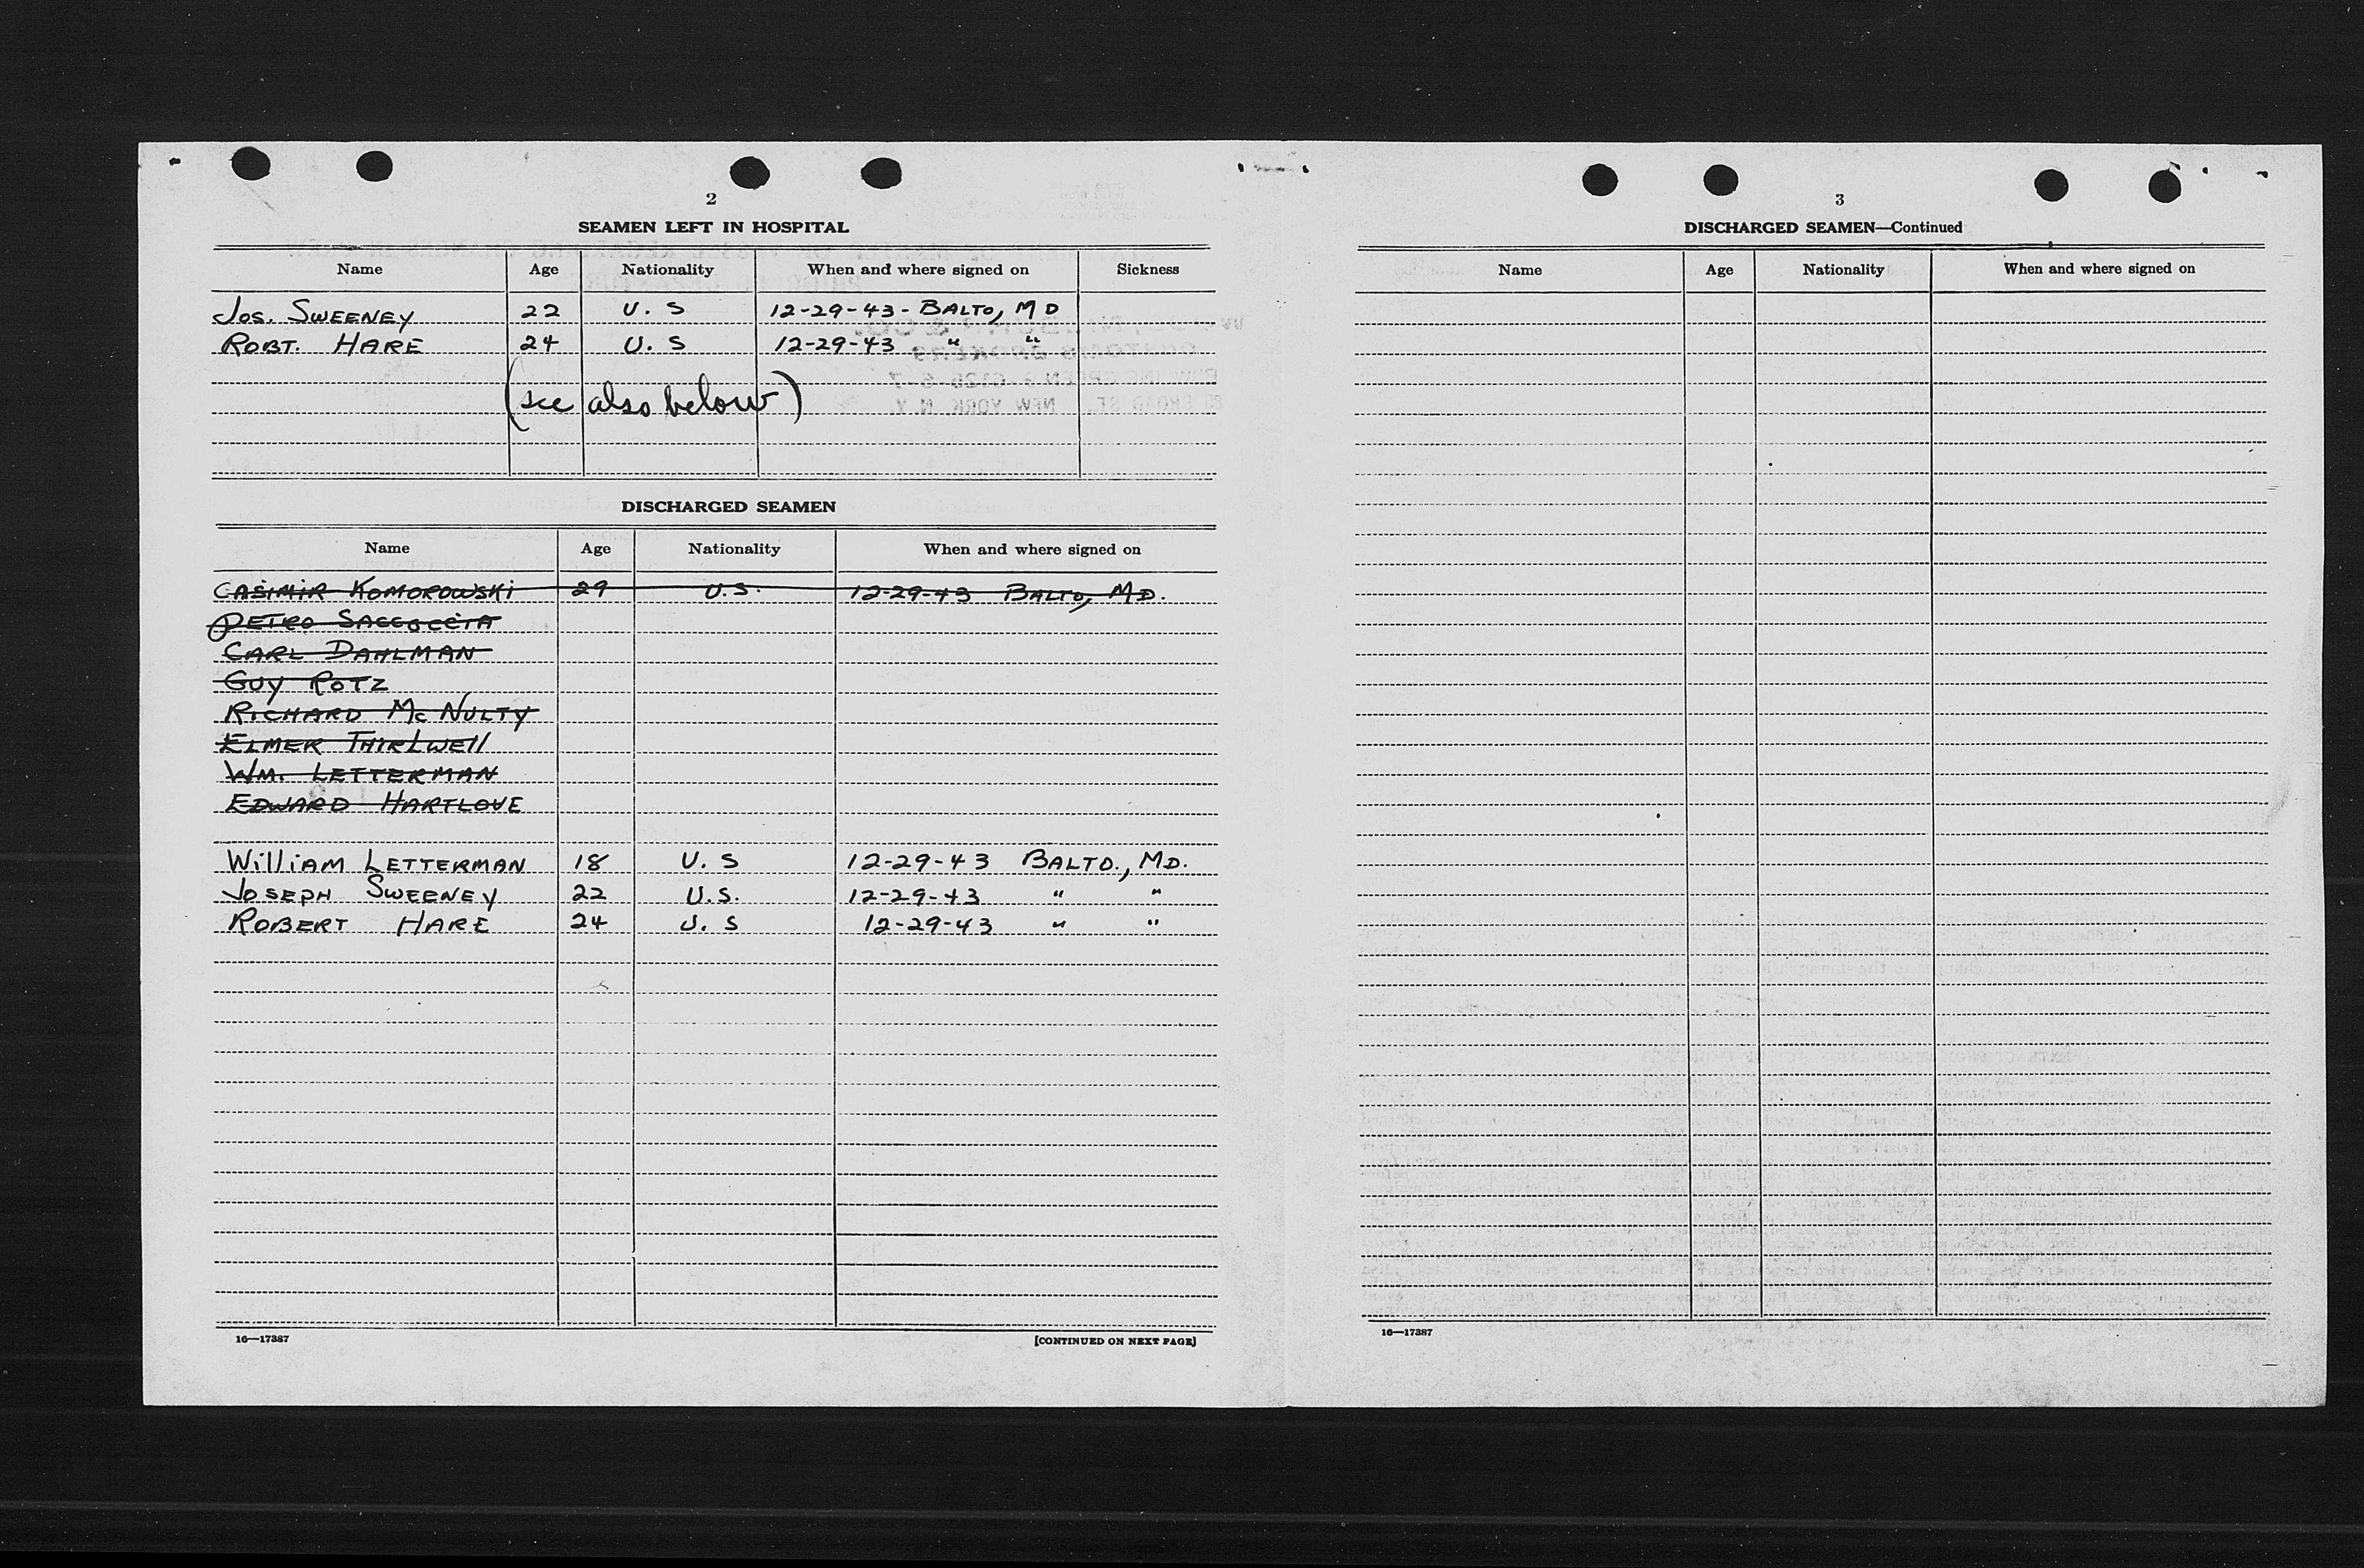 2
SEAMEN LEFT IN HOSPITAL
Name Age Nationality When and where signed on Sickness
Jos. SWEENEY 22 U. S 12-29-43 - BALTO, MD
ROBT. HARE 24 U. S 12-29-43 " "
(see also below)
DISCHARGED SEAMEN
Name Age Nationality When and where signed on
CASIMIR KOMOROWSKI 29 U.S. 12-29-43 BALTO, MD.
PETRO SACCOCCIA
CARL DAHLMAN
GUY ROTZ
RICHARD McNULTY
ELMER THIRLWEll
WM. LETTERMAN
EDWARD HARTLOVE
WilliAM LETTERMAN 18 U. S 12-29-43 BALTO., MD.
JOSEPH SWEENEY 22 U.S. 12-29-43 " "
ROBERT HARE 24 U. S 12-29-43 " "
16—17387 [CONTINUED ON NEXT PAGE]
3
DISCHARGED SEAMEN—Continued
Name Age Nationality When and where signed on
16—17387